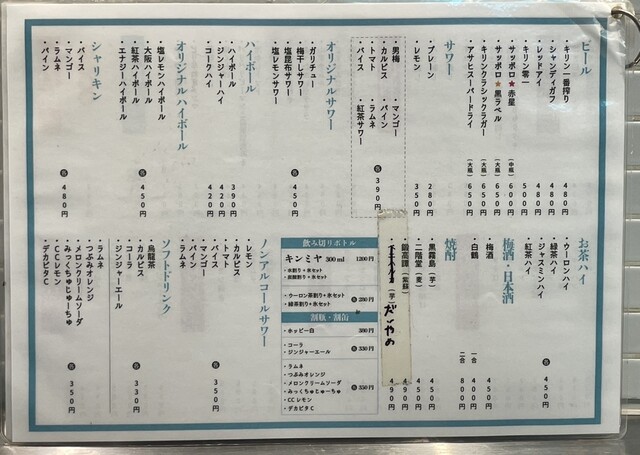 ビール
・キリン一番搾り 480円
・シャンディガフ 480円
・レッドアイ 480円
・キリン零一 500円
・サッポロ★赤星 (中瓶) 600円
・サッポロ★黒ラベル (大瓶) 650円
・キリンクラシックラガー (大瓶) 650円
・アサヒスーパードライ (大瓶) 650円
サワー
・プレーン 280円
・レモン 350円
・男梅 ・マンゴー
・カルピス ・パイン
・トマト ・ラムネ
・バイス ・紅茶サワー
各390円
オリジナルサワー
・ガリチュー
・梅干しサワー
・塩昆布サワー
・塩レモンサワー
各450円
ハイボール
・ハイボール 390円
・ジンジャーハイ 420円
・コークハイ 420円
オリジナルハイボール
・塩レモンハイボール
・大阪ハイボール
・紅茶ハイボール
・エナジーハイボール
各450円
シャリキン
・バイス
・マンゴー
・ラムネ
・パイン
各480円
お茶ハイ
・ウーロンハイ
・緑茶ハイ
・ジャスミンハイ
・紅茶ハイ
各450円
梅酒・日本酒
・梅酒 450円
・白鶴 一合 400円
二合 800円
焼酎
・黒霧島(芋) 450円
・二階堂(麦) 450円
・鍛高譚(紫蘇) 490円
(芋) だいやめ 490円
飲み切りボトル
キンミヤ 300ml 1200円
・水割り+氷セット
・炭酸割り+氷セット
・ウーロン茶割り+氷セット
・緑茶割り+氷セット
割瓶・割缶
・ホッピー白
・コーラ
・ジンジャーエール
各330円
・ラムネ
・つぶみオレンジ
・メロンクリームソーダ
・みっくちゅじゅーちゅ
・CCレモン
・デカビタC
各350円
ノンアルコールサワー
・レモン
・カルピス
・トマト
・バイス
・マンゴー
・ラムネ
各350円
ソフトドリンク
・烏龍茶
・カルピス
・コーラ
・ジンジャーエール
各330円
・ラムネ
・つぶみオレンジ
・メロンクリームソーダ
・みっくちゅじゅーちゅ
・CCレモン
・デカビタC
各350円